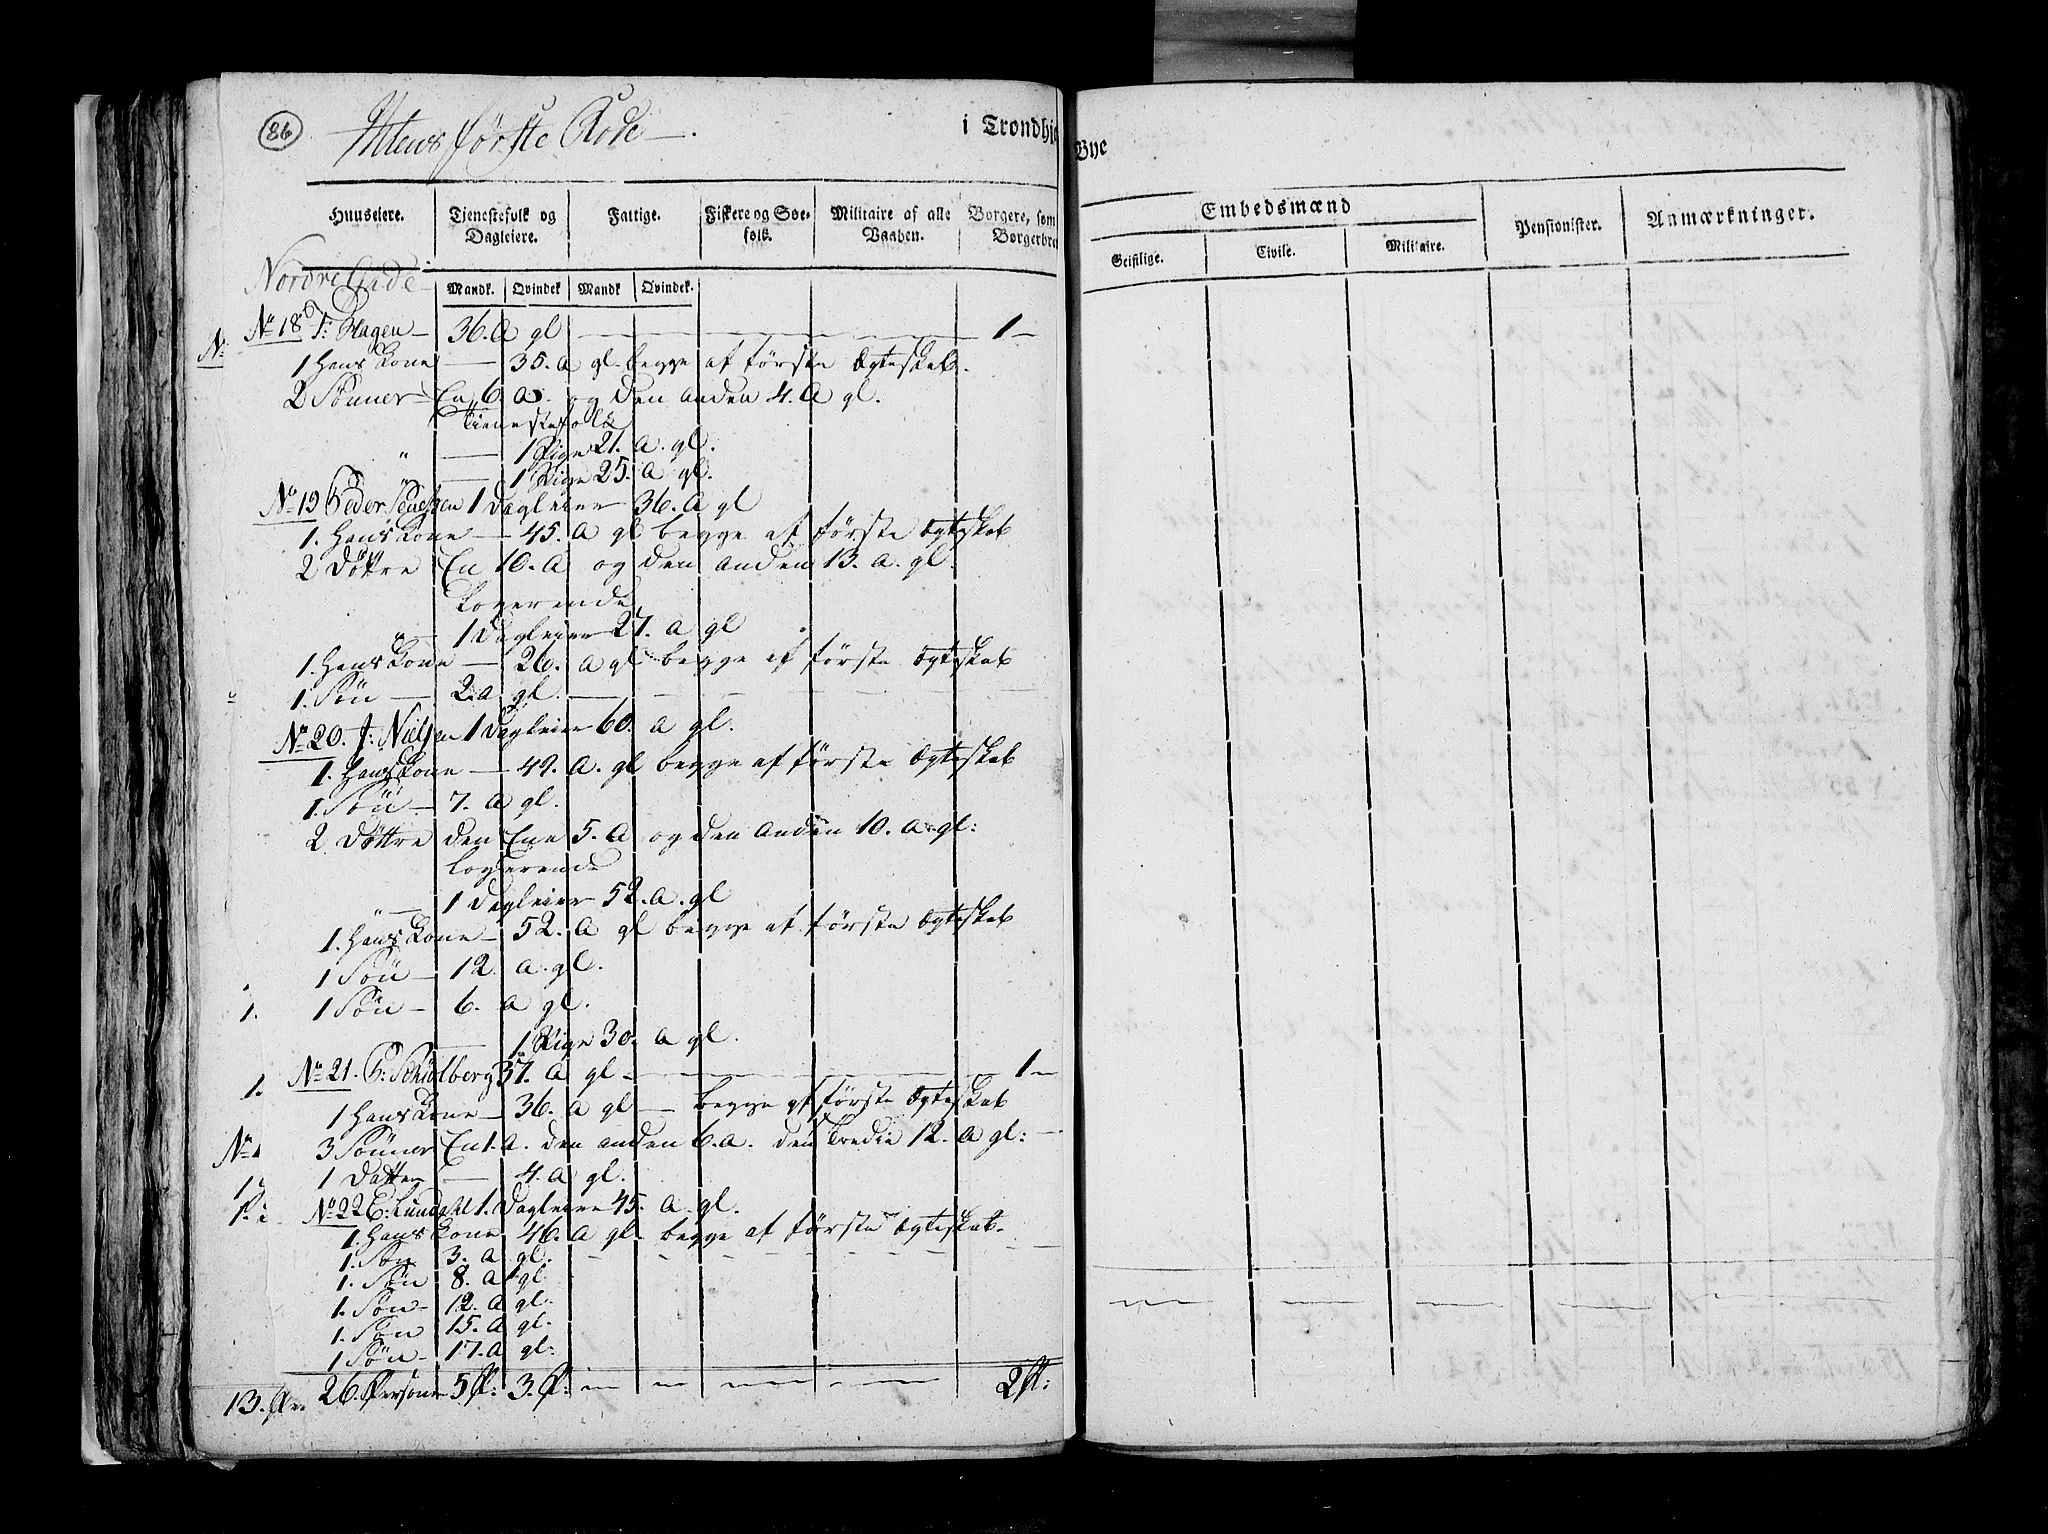 86
Ihlens første Rode
i Trondhj
Bye
Huuseiere.
Tjenestefolk og Dagleiere.
Fattige.
Fiskere og Søe-folk.
Militaire af alle Vaaben.
Borgere, som
Borgerbre
Embedsmænd
Geistlige.
Civile.
Militaire.
Pensionister.
Anmærkninger.
Nordre Gade
Mandk. Qvindek Mandk Qvindek.
No 18 Hagen 36. A gl 1
1 Hans Kone 35. A gl begge af første Ægteskab.
2 Sønner En 6 A. og den anden 4. A gl.
Tienestefolk
1 Pige 21. A. gl.
1 Pige 25. A gl.
No 19 Peder 1 Dagleier 36. A gl
1. Hans Kone 45. A gl begge af første Ægteskab
2 Døttre En 10. A og den anden 13. A. gl.
Logerende
1 Dagleier 27. A gl
1. Hans Kone 26. A gl begge af første Ægteskab
1. Søn 2. A gl.
No 20. J: Nielsen 1 Dagleier 60. A gl.
1. Hans Kone 49. A. gl begge af første Ægteskab
1. Søn 7. A gl.
2 Døttre den Ene 5. A og den anden 10. A gl:
Logerende
1 Dagleier 52. A. gl
1. Hans Kone 52. A gl begge af første Ægteskab
1 Søn 12. A. gl.
1. 1 Søn 6. A gl.
1 Pige 30. A gl.
1. No 21. Schiølberg 37. A gl 1
1 Hans Kone 36. A gl begge af første Ægteskab
No 3 Sønner En 1. A. den anden 6. A. den tredie 12. A gl:
1 Datter 4. A gl.
No 22 Lundahl 1. Dagleier 45. A. gl.
1. Hans Kone 46. A gl begge af første Ægteskab.
1. Søn 3. A gl.
1. Søn 8. A gl
1. Søn 12. A gl.
1. Søn 15. A gl.
1 Søn 17. A gl:
13. 26. Personer 5 P: 3. P: 2 P: